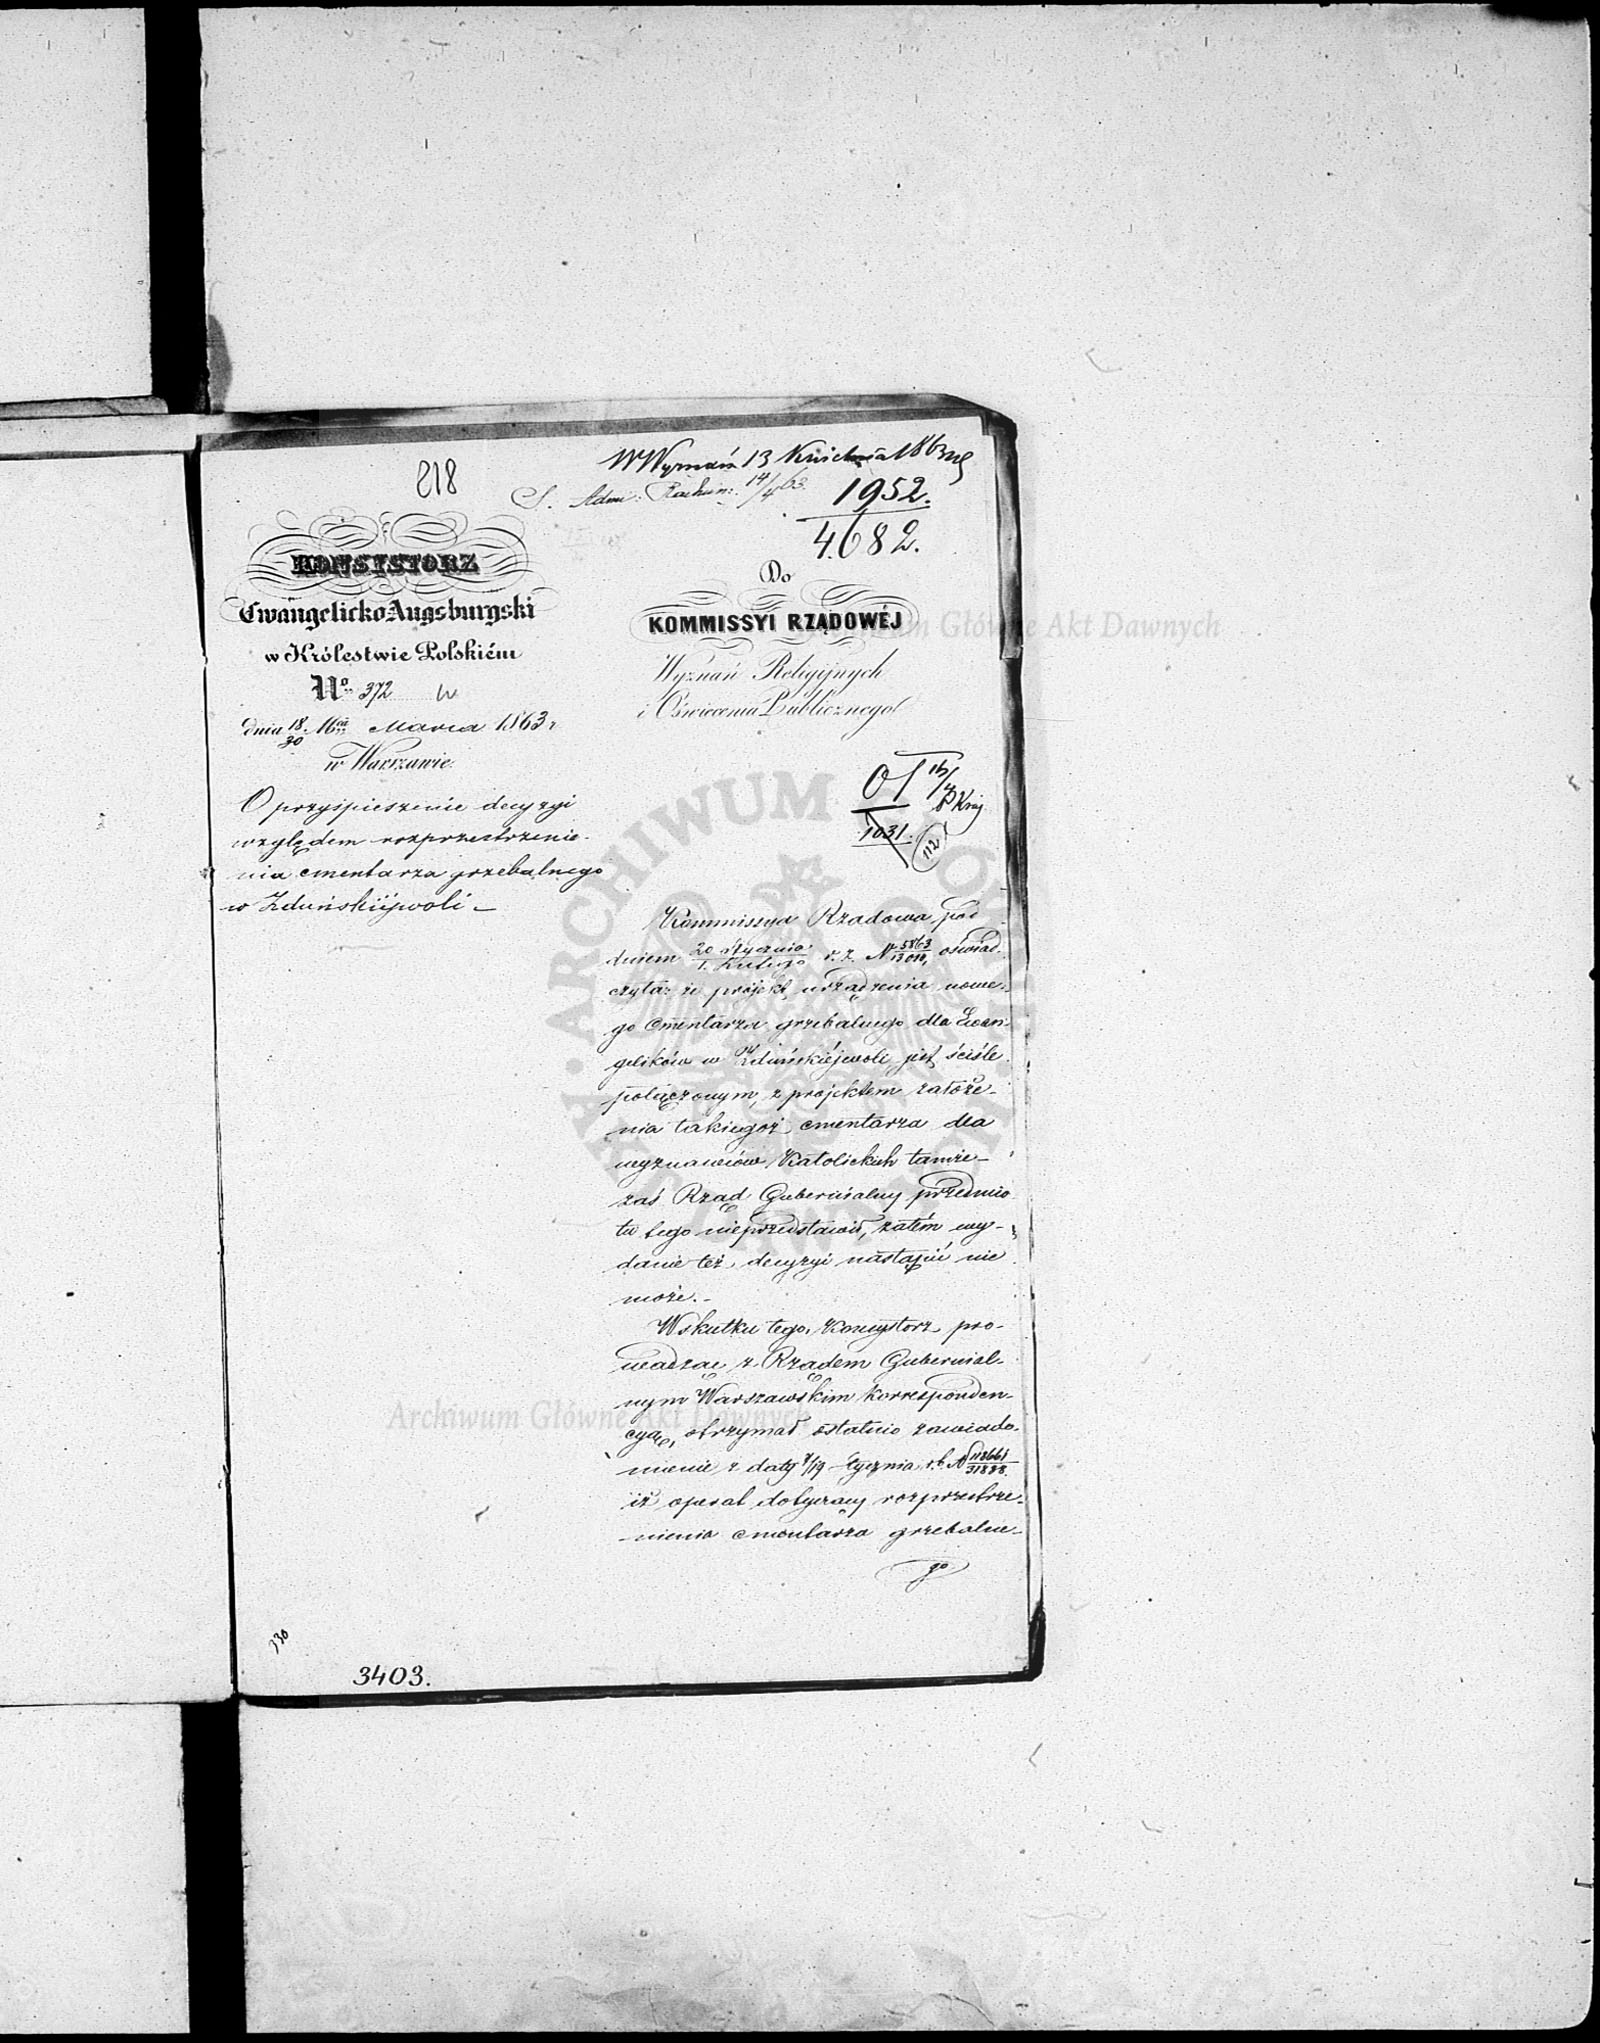 218
W Wyznań 13 Kwietnia 1863
S. Adm: Rachun: 14/4 63.
1952.
4682.
KONSYSTORZ
Ewangelicko Augsburgski
w Królestwie Polskiém
No 372
dnia 18/30 Mca Marca 1863 r
w Warszawie.
O przyśpieszenie decyzyi
względem rozprzestrzenie-
nia cmentarza grzebalnego
w Zduńskiéjwoli –
Do
KOMMISSYI RZĄDOWÉJ
Wyznań Religijnych
i Oświecenia Publicznego
1031.
112
Kommissya Rządowa pod
dniem 20 Stycznia/1. Lutego r. z. N 5863/13011, oświad-
czyła: że projekt urządzenia nowe-
go cmentarza grzebalnego dla Ewan-
gelików w Zduńskiéjwoli jest ściśle
połączonym, z projektem założe-
nia takiegoż cmentarza dla
wyznawców Katolickich tamże–
zaś Rząd Gubernialny przedmio
tu tego nieprzedstawił, zatém wy-
danie też decyzyi nastąpić nie
może.–
Wskutku tego, Konsystorz pro-
wadząc z Rządem Gubernial-
nym Warszawskim korresponden-
cyą, otrzymał ostatnio zawiado-
mienie z daty 7/19 Stycznia r. b. N 118661/31888
iż operat dotyczący rozprzestrze-
nienia cmentarza grzebalne-
go
330
3403.
ARCHIWUM
Archiwum Główne Akt Dawnych
Archiwum Główne Akt Dawnych